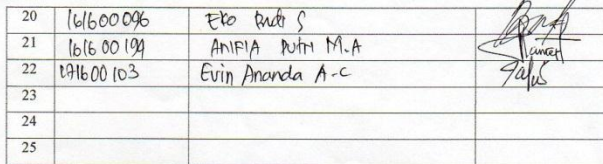 20 161600096 Eko Budi S
21 161600199 M.A
22 171600103 Evin Ananda A-C
23
24
25